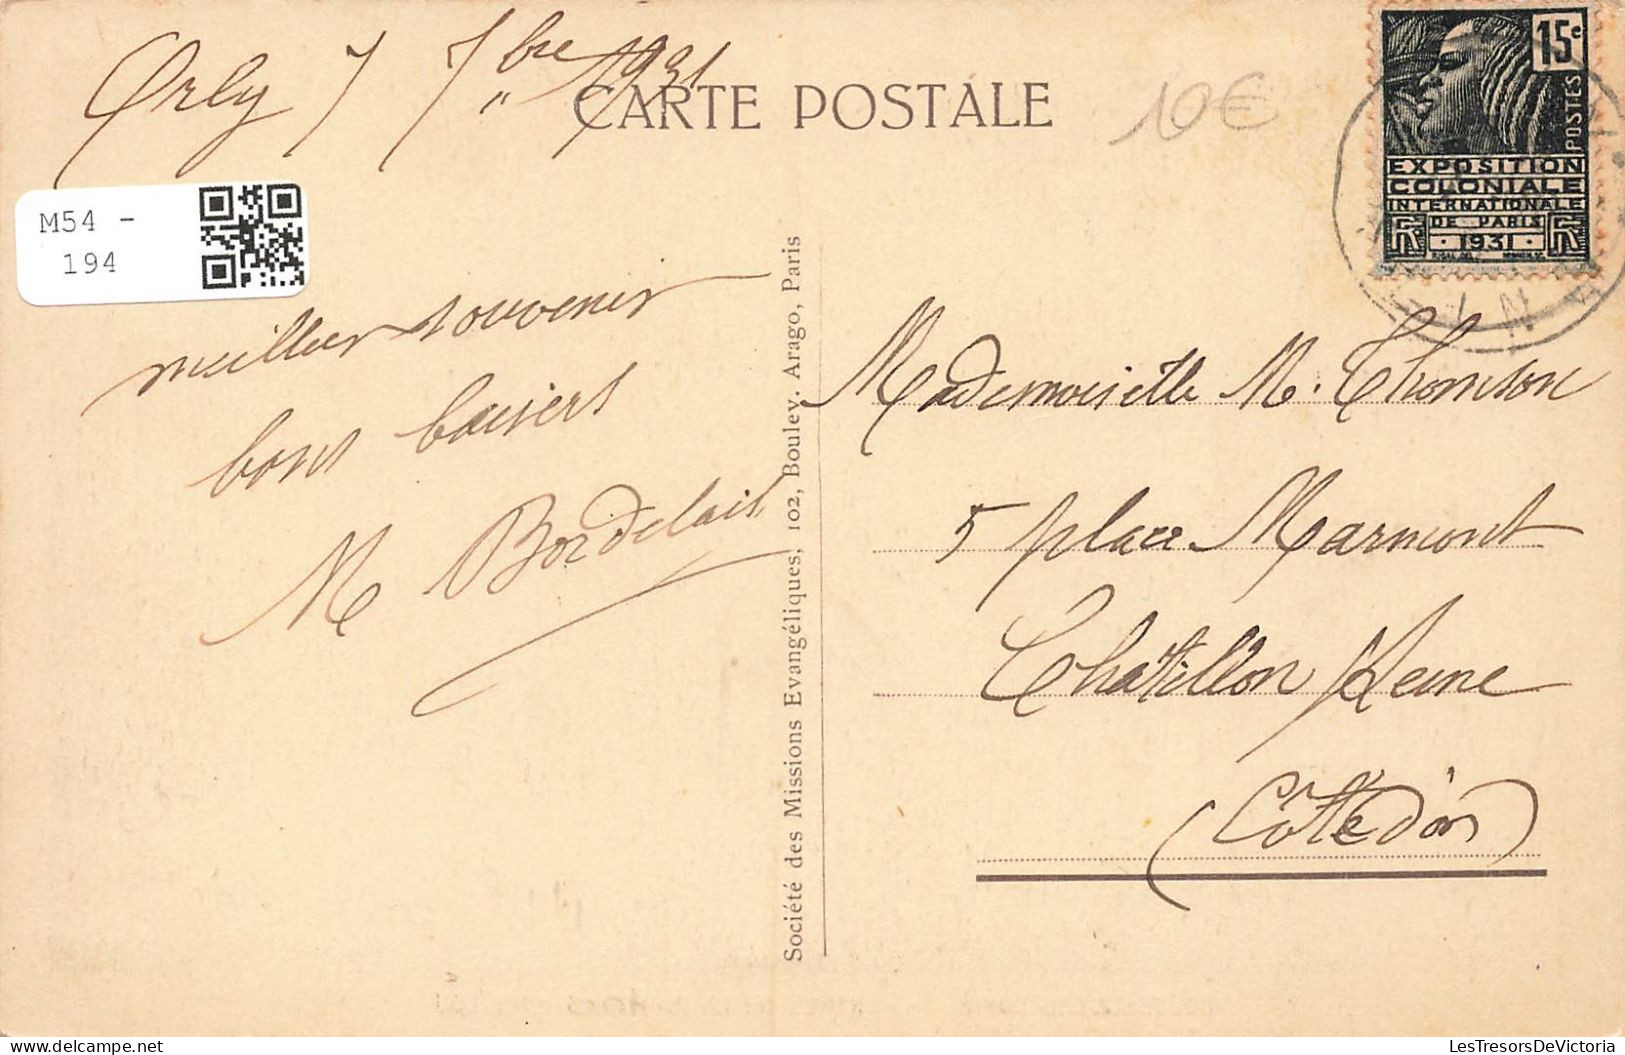 Orly 7 7bre 1931
CARTE POSTALE
10€
15c
POSTES
EXPOSITION
COLONIALE
INTERNATIONALE
DE PARIS
RF · 1931 · RF
M54 -
194
meilleur souvenir
bons baisers
M Bordelais
Société des Missions Evangéliques, 102, Boulev. Arago, Paris
Mademoiselle M. Thomson
5 place Marmont
Châtillon s/ Seine
(Côte d'or)
LesTresorsDeVictoria